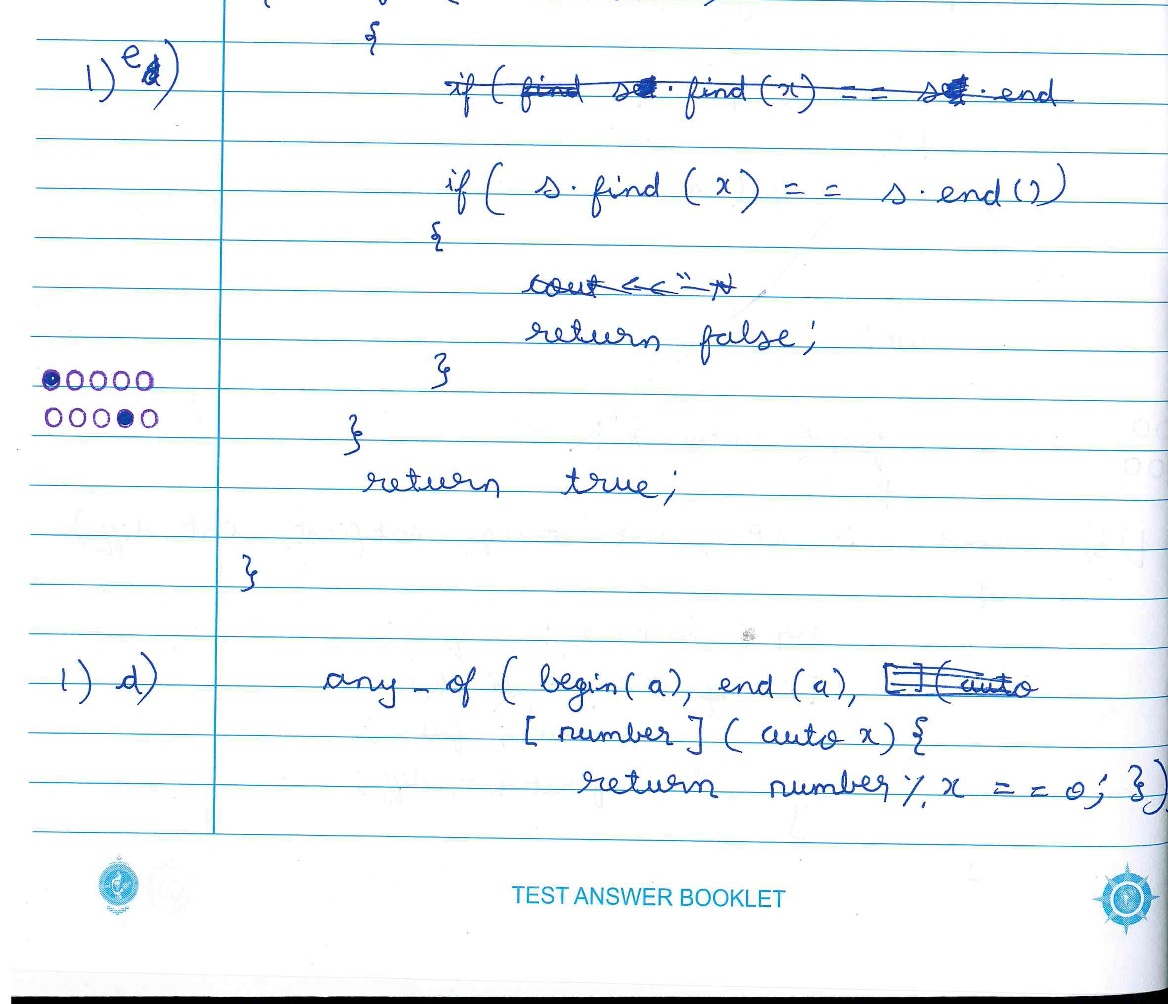 {
1) e)
if ( find s . find (x) == s . end
if ( s. find (x) == s. end ())
{
cout <<"N
return false;
}
}
return true;
}
1) d) any_of ( begin(a), end (a), [](auto
[ number ] ( auto x) {
return number % x == 0; })
TEST ANSWER BOOKLET